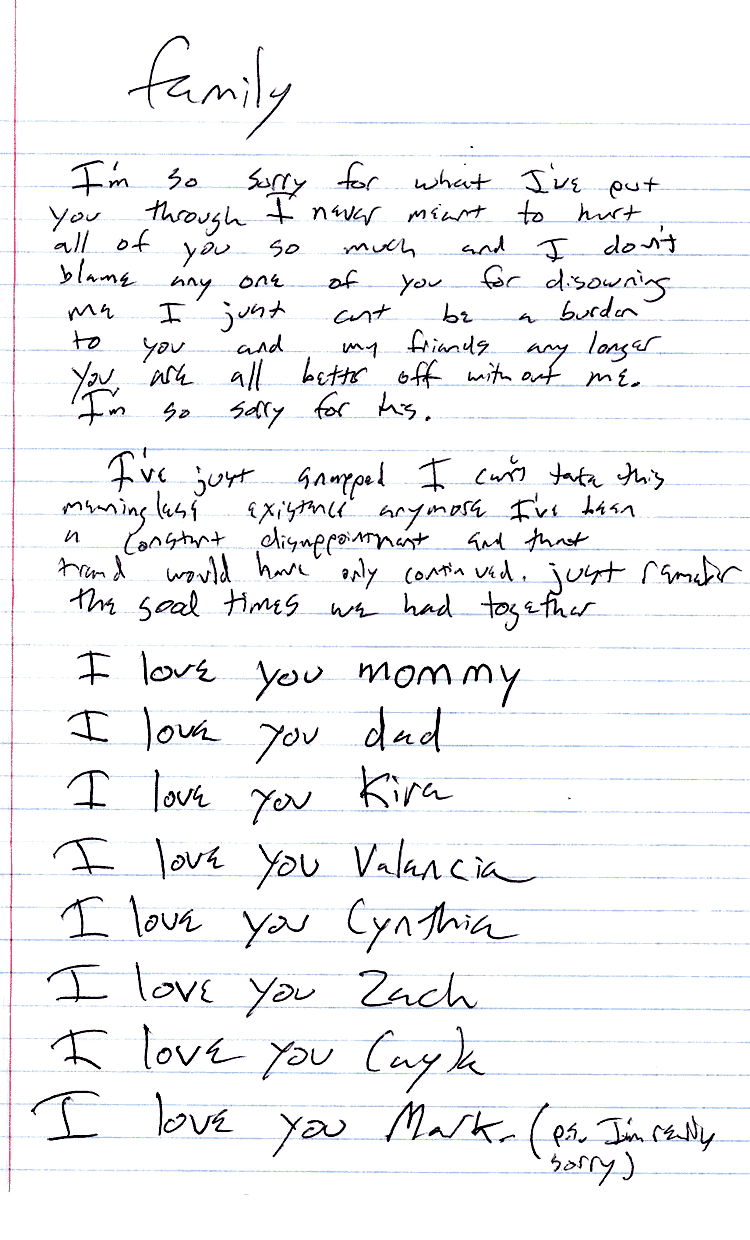 family
I'm so sorry for what I've put
you through I never meant to hurt
all of you so much and I don't
blame any one of you for disowning
me I just cant be a burden
to you and my friends any longer
You are all better off without me.
I'm so sorry for this.
I've just snapped I can't take this
meaningless existence anymore I've been
a constant disappointment and that
trend would have only continued. just remember
the good times we had together
I love you mommy
I love you dad
I love you Kira
I love you Valancia
I love you Cynthia
I love you Zach
I love you Cayla
I love you Mark. (p.s. I'm really
sorry)